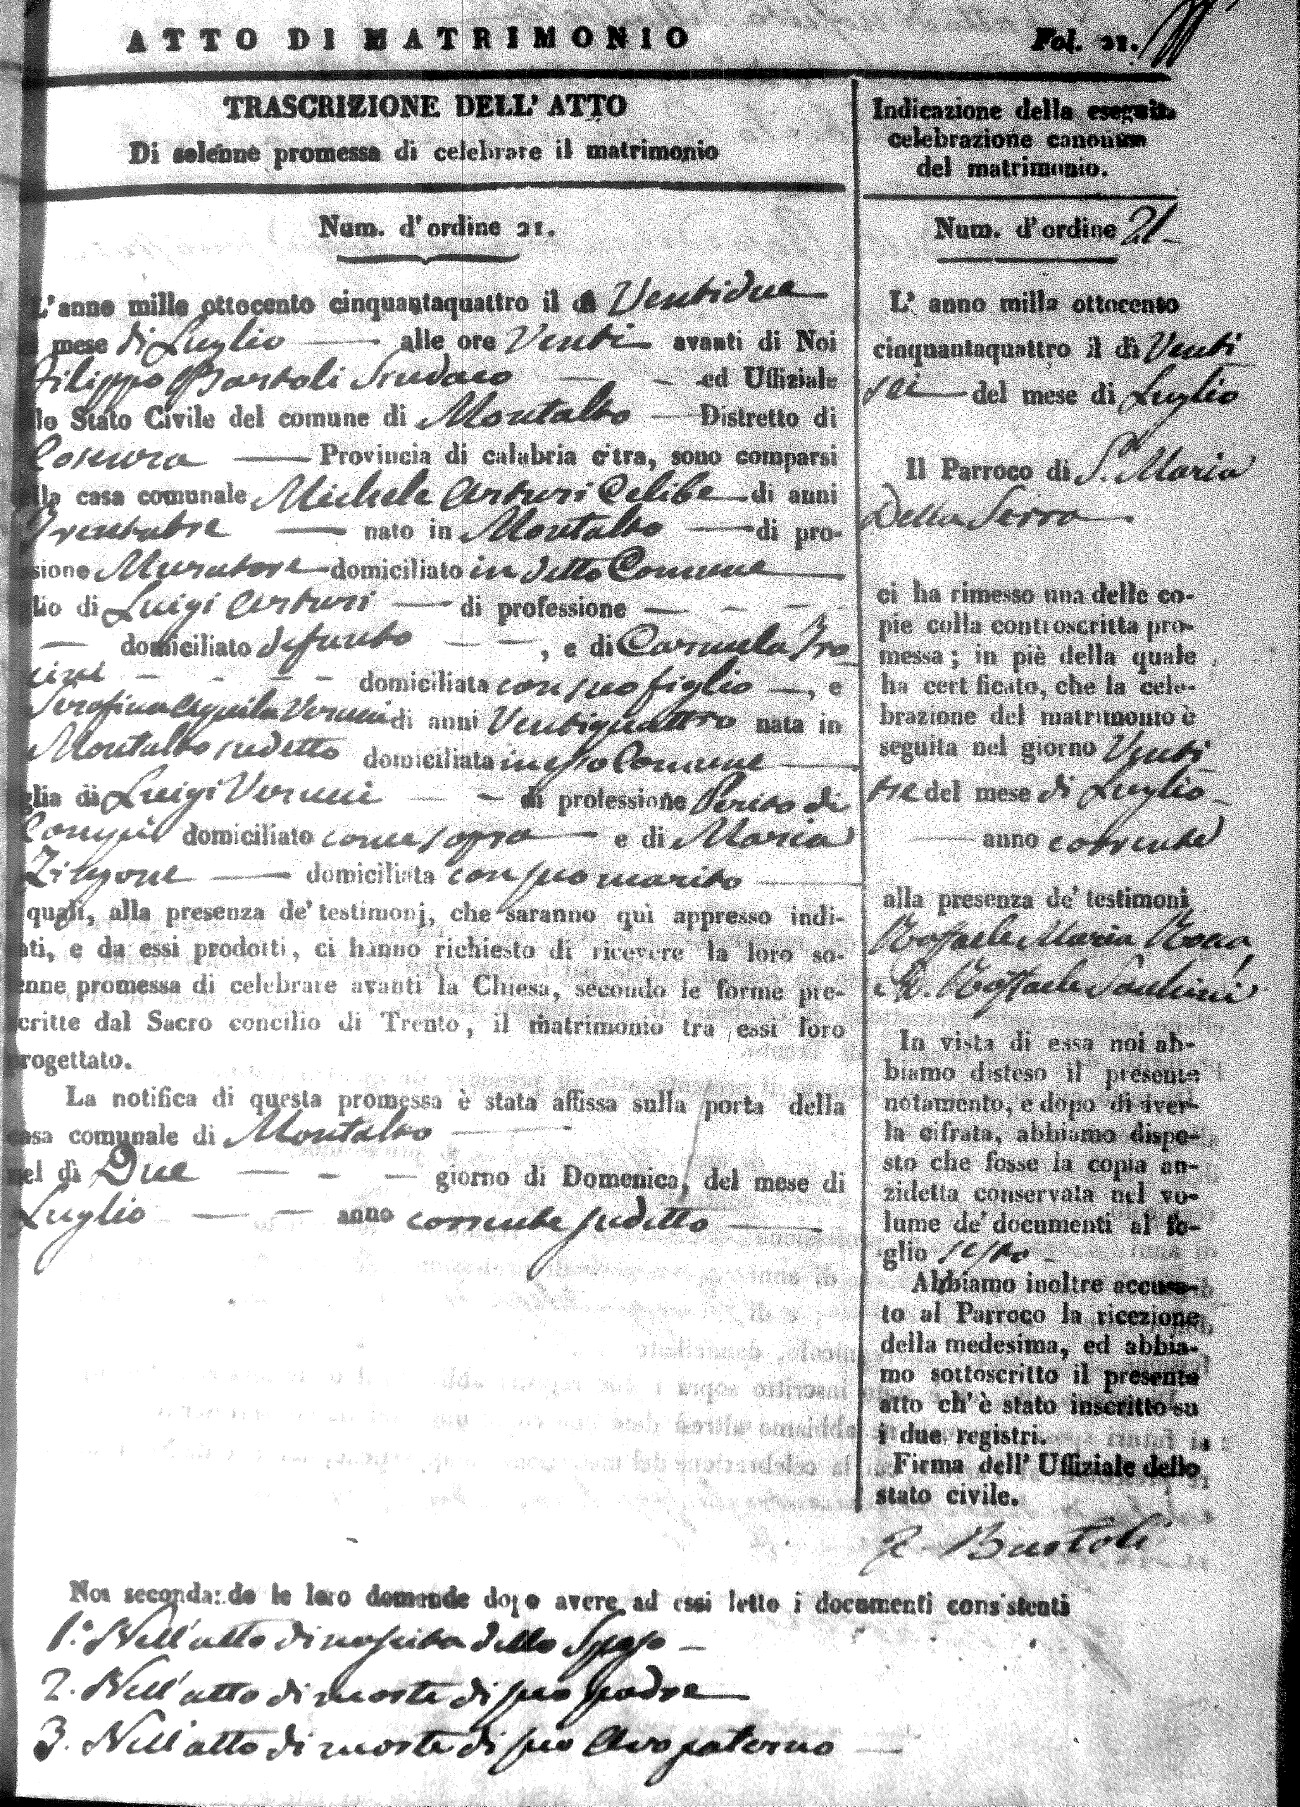 ATTO DI MATRIMONIO
Fol. 21.
TRASCRIZIONE DELL' ATTO
Di solenne promessa di celebrare il matrimonio
Num. d'ordine 21.
L'anno mille ottocento cinquantaquattro il dì Ventidue
mese di Luglio — alle ore Venti — avanti di Noi
Filippo Bartoli Sindaco — - ed Uffiziale
lo Stato Civile del comune di Montalto — Distretto di
Cosenza — Provincia di calabria citra, sono comparsi
lla casa comunale Michele Arturi Celibe — di anni
Trentatre — nato in Montalto — di pro-
sione Muratore domiciliato in detto Comune
lio di Luigi Arturi — di professione — - - -
— domiciliato defunto — — , e di Carmela Tro
domiciliata con suo figlio —, e
Serafina Aquila Veruni di anni Ventiquattro nata in
Montalto sudetto domiciliata in esso Comune —
glia di Luigi Veruni — - di professione Perito di
Campi domiciliato come sopra — e di Maria
domiciliata con suo marito —
quali, alla presenza de' testimonj, che saranno qui appresso indi-
ati, e da essi prodotti, ci hanno richiesto di ricevere la loro so-
enne promessa di celebrare avanti la Chiesa, secondo le forme pre-
critte dal Sacro concilio di Trento, il matrimonio tra essi loro
rogettato.
La notifica di questa promessa è stata affissa sulla porta della
casa comunale di Montalto —
nel dì Due — - — giorno di Domenica, del mese di
Luglio — - anno corrente sudetto —
Indicazione della eseguita
celebrazione canonica
del matrimonio.
Num. d'ordine 21
L' anno mille ottocento
cinquantaquattro il dì Venti
sei — del mese di Luglio
Il Parroco di S.a Maria
Della Serra
ci ha rimesso una delle co-
pie colla controscritta pro-
messa; in piè della quale
ha certificato, che la cele-
brazione del matrimonio è
seguita nel giorno Venti
tre del mese di Luglio
— anno corrente
alla presenza de' testimoni
Raffaele Maria
Raffaele
In vista di essa noi ab-
biamo disteso il presente
notamento, e dopo di aver-
la cifrata, abbiamo dispo-
sto che fosse la copia an-
zidetta conservata nel vo-
lume de' documenti al fo-
glio sesto -
Abbiamo inoltre accusa-
to al Parroco la ricezione
della medesima, ed abbia-
mo sottoscritto il presente
atto ch' è stato inscritto su
i due registri.
Firma dell' Uffiziale dello
stato civile.
F. Bartoli
Noi secondando le loro domande dopo avere ad essi letto i documenti consistenti
1.° Nell'atto di nascita dello Sposo —
2. Nell'atto di morte di suo padre
3. Nell'atto di morte di suo Avo paterno —